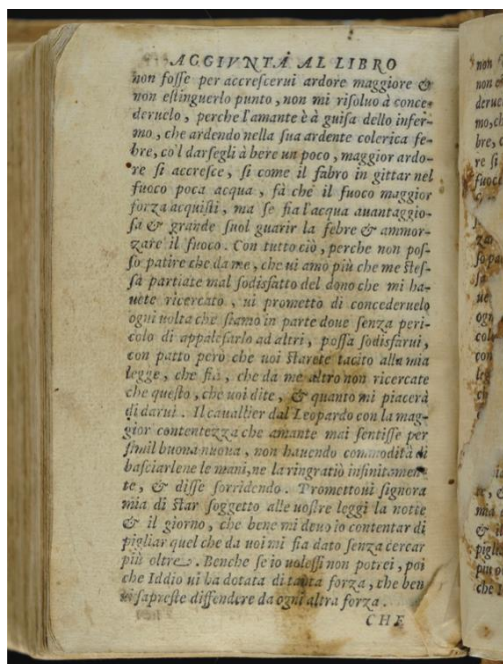 AGGIVNTA AL LIBRO
non foſſe per accreſcerui ardore maggiore &
non eſtinguerlo punto, non mi riſoluo à conce-
deruelo, perche l'amante è à guiſa dello infer-
mo, che ardendo nella ſua ardente colerica fe-
bre, co'l darſegli à bere un poco, maggior ardo-
re ſi accreſce, ſi come il fabro in gittar nel
fuoco poca acqua, fà che il fuoco maggior
forza acquiſti, ma ſe ſia l'acqua auantaggio-
ſa & grande ſuol guarir la febre & ammor-
zare il fuoco. Con tutto ciò, perche non poſ-
ſo patire che da me, che ui amo più che me ſteſ-
ſa partiate mal ſodisfatto del dono che mi ha-
uete ricercato, ui prometto di concederuelo
ogni uolta che ſiamo in parte doue ſenza peri-
colo di appaleſarlo ad altri, poſſa ſodisfarui,
con patto però che uoi ſtarete tacito alla mia
legge, che fia, che da me altro non ricercate
che queſto, che uoi dite, & quanto mi piacerà
di darui. Il cauallier dal Leopardo con la mag-
gior contentezza che amante mai ſentiſſe per
ſimil buona nuoua, non hauendo commodità di
baſciarlene le mani, ne la ringratiò infinitamen-
te, & diſſe ſorridendo. Promettoui ſignora
mia di ſtar ſoggetto alle uoſtre leggi la notte
& il giorno, che bene mi deuo io contentar di
pigliar quel che da uoi mi ſia dato ſenza cercar
più oltre. Benche ſe io uoleſſi non potrei, poi
che Iddio ui ha dotata di tanta forza, che ben
ui ſapreſte diffendere da ogni altra forza.
CHE